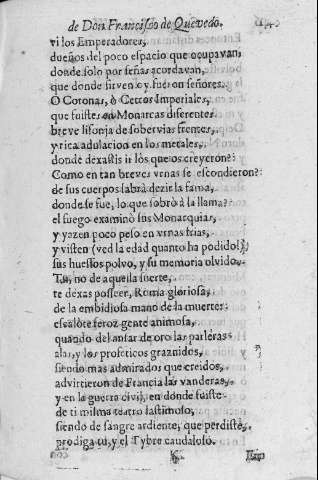 de Don Francisco de Quevedo.
vi los Emperadores,
dueños del poco espacio que ocupavan,
donde solo por señas acordavan,
que donde sirven oy fueron señores.
O Coronas, ò Cetros Imperiales,
que fuistes en Monarcas diferentes
breve lisonja de sobervias frentes,
y rica adulacion en los metales,
donde dexastis ir lòs que os creyeron?
Como en tan breves vrnas se escondieron?
de sus cuerpos sabrà dezir la fama,
donde se fue, lo que sobrò a la llama?
el fuego examinò sus Monarquias,
y yazen poco peso en vrnas frias,
y visten (ved la edad quanto ha podido!)
sus huessos polvo, y su memoria olvido.
Tu, no de aquella suerte,
te dexas posseer, Roma gloriosa,
de la embidiosa mano de la muerte:
escalòte feroz gente animosa,
quando del ansar de oro las parleras
alas, y los profeticos graznidos,
siendo mas admirados que creidos,
advirtieron de Francia las vanderas,
y en la guerra civil, en donde fuiste
de ti misma teatro lastimoso,
siendo de sangre ardiente, que perdiste
prodiga tù, y el Tybre caudaloso.
K